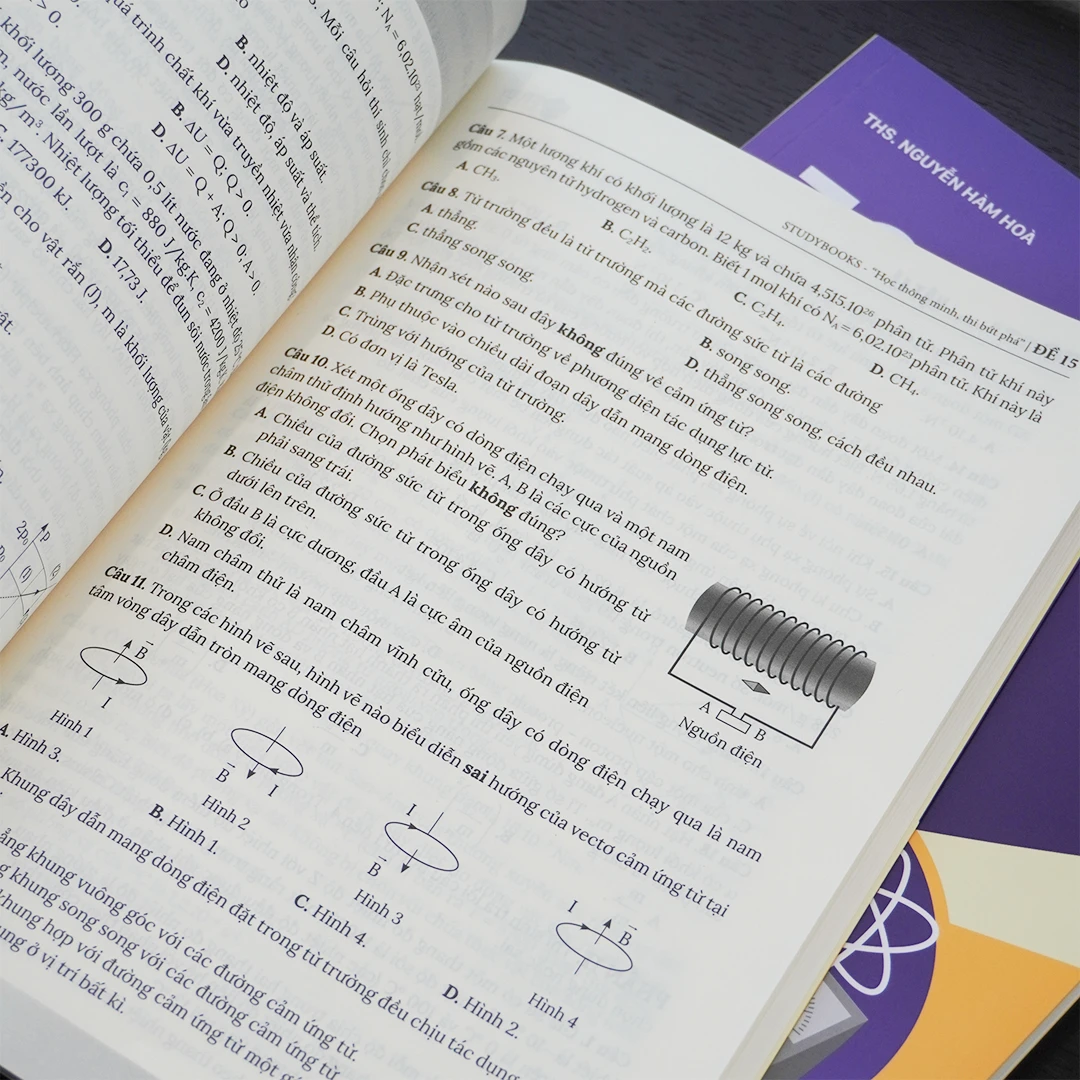 > 0.
uá trình chất khí vừa truyền nhiệt vừa nhận công
B. ΔU = Q; Q > 0.
D. ΔU = Q + A; Q > 0; A > 0.
khối lượng 300 g chứa 0,5 lít nước đang ở nhiệt độ
nước lần lượt là c₁ = 880 J/kg.K, c₂ = 4200 J/kg
kg/m³. Nhiệt lượng tối thiểu để đun sôi nước trong
177300 kJ.
D. 17,73 J.
cho vật rắn (J), m là khối lượng của vật
B. nhiệt độ và áp suất.
D. nhiệt độ, áp suất và thể tích.
Mỗi câu hỏi thí sinh chỉ
2p₀
p
p₀
(1)
STUDYBOOKS - "Học thông minh, thi bứt phá" | ĐỀ 15
Câu 7. Một lượng khí có khối lượng là 12 kg và chứa 4,515.10²⁶ phân tử. Phân tử khí này
gồm các nguyên tử hydrogen và carbon. Biết 1 mol khí có N_A = 6,02.10²³ phân tử. Khí này là
A. CH₃.
B. C₂H₂.
C. C₂H₄.
D. CH₄.
Câu 8. Từ trường đều là từ trường mà các đường sức từ là các đường
A. thẳng.
B. song song.
C. thẳng song song.
D. thẳng song song, cách đều nhau.
Câu 9. Nhận xét nào sau đây không đúng về cảm ứng từ?
A. Đặc trưng cho từ trường về phương diện tác dụng lực từ.
B. Phụ thuộc vào chiều dài đoạn dây dẫn mang dòng điện.
C. Trùng với hướng của từ trường.
D. Có đơn vị là Tesla.
Câu 10. Xét một ống dây có dòng điện chạy qua và một nam
châm thử định hướng như hình vẽ. A, B là các cực của nguồn
điện không đổi. Chọn phát biểu không đúng?
A. Chiều của đường sức từ trong ống dây có hướng từ
phải sang trái.
B. Chiều của đường sức từ trong ống dây có hướng từ
dưới lên trên.
C. Ở đầu B là cực dương, đầu A là cực âm của nguồn điện
không đổi.
D. Nam châm thử là nam châm vĩnh cửu, ống dây có dòng điện chạy qua là nam
châm điện.
A
B
Nguồn điện
Câu 11. Trong các hình vẽ sau, hình vẽ nào biểu diễn sai hướng của vectơ cảm ứng từ tại
tâm vòng dây dẫn tròn mang dòng điện
B
I
Hình 1
B
I
Hình 2
I
B
Hình 3
I
B
Hình 4
A. Hình 3.
B. Hình 1.
C. Hình 4.
D. Hình 2.
Khung dây dẫn mang dòng điện đặt trong từ trường đều chịu tác dụng
khung vuông góc với các đường cảm ứng từ.
khung song song với các đường cảm ứng từ
hợp với đường cảm ứng từ một
ở vị trí bất kì.
THS. NGUYỄN HÀM HOÀ